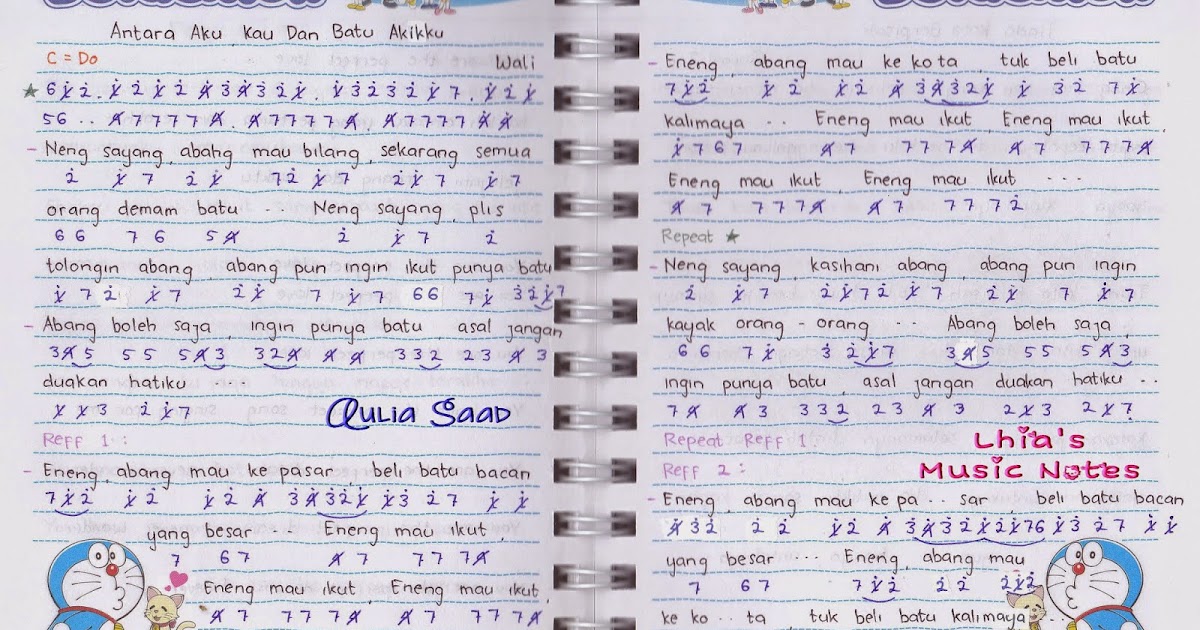 Antara Aku, Kau Dan Batu Akikku
C = Do
Wali
★ 6 1̸̇ 2̇ . 1̸̇ 2̇ 1̸̇ 2̇ 4̸̇ 3̇ 4̸̇ 3̇ 2̇ 1̸̇ . 1̸̇ 3̇ 2̇ 3̇ 2̇ 1̸̇ 7 . 1̸̇ 2̇ 1̸̇
5 6 . . 4̸ 7 7 7 7 4̸ . 4̸ 7 7 7 7 4̸ . 4̸ 7 7 7 7 4̸ 4̸
- Neng sayang, abang mau bilang, sekarang semua
2̇ 1̸̇ 7 2̇ 1̸̇ 7 2̇ 1̸̇ 7 2̇ 1̸̇ 7 1̸̇ 7
orang demam batu ... Neng sayang, plis
6 6 7 6 5 4̸ 2̇ 1̸̇ 7 2̇
tolongin abang abang pun ingin ikut punya batu
1̸̇ 7 2̇ 1̸̇ 7 2̇ 1̸̇ 7 1̸̇ 7 6 6 7 1̸̇ 3̇ 2̇ 1̸̇ 7
- Abang boleh saja, ingin punya batu asal jangan
3 4̸ 5 5 5 5 4̸ 3 3 2 4̸ 4̸ 4̸ 3 3 2 2 3 4̸ 3
duakan hatiku
1̸ 1̸ 3 2̇ 1̸̇ 7
Aulia Saad
Reff 1 :
- Eneng, abang mau ke pasar beli batu bacan
7 1̸̇ 2̇ 1̸̇ 2̇ 1̸̇ 2̇ 4̸̇ 3̇ 4̸̇ 3̇ 2̇ 1̸̇ 1̸̇ 3̇ 2̇ 7 1̸̇ 1̸̇
yang besar ... Eneng mau ikut,
7 6 7 4̸ 7 7 7 7 4̸
Eneng mau ikut, Eneng mau ikut,
4̸ 7 7 7 7 4̸ 4̸ 7 7 7 7 4̸
- Eneng, abang mau ke kota tuk beli batu
7 1̸̇ 2̇ 1̸̇ 2̇ 1̸̇ 2̇ 4̸̇ 3̇ 4̸̇ 3̇ 2̇ 1̸̇ 1̸̇ 3̇ 2̇ 7 1̸̇
kalimaya .. Eneng mau ikut, Eneng mau ikut,
1̸̇ 7 6 7 4̸ 7 7 7 7 4̸ 4̸ 7 7 7 7 4̸
Eneng mau ikut, Eneng mau ikut ...
4̸ 7 7 7 7 4̸ 4̸ 7 7 7 7 2̇
Repeat ★
- Neng sayang, kasihani abang, abang pun ingin
2̇ 1̸̇ 7 2̇ 1̸̇ 7 2̇ 1̸̇ 7 2̇ 1̸̇ 7 1̸̇ 7
kayak orang - orang .. Abang boleh saja
6 6 7 1̸̇ 3̇ 2̇ 1̸̇ 7 3 4̸ 5 5 5 5 4̸ 3
ingin punya batu, asal jangan duakan hatiku ..
7 4̸ 4̸ 3 3 3 2 2 3 4̸ 3 2 1̸ 3 2 1̸ 7
Repeat Reff 1.
Lhia's
Reff 2 :
Music Notes
- Eneng, abang mau ke pa .. sar, beli batu bacan
4̸̇ 3̇ 2̇ 2̇ 2̇ 1̸̇ 2̇ 4̸̇ 3̇ 4̸̇ 3̇ 2̇ 1̸̇ 2̇ 1̸̇ 7 6 1̸̇ 3̇ 2̇ 7 1̸̇ 1̸̇
yang besar ... Eneng, abang mau
7 6 7 7 1̸̇ 2̇ 2̇ 2̇ 2̇ 1̸̇ 2̇
ke ko .. ta tuk beli batu kalimaya